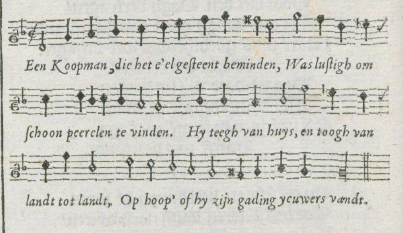 Een Koopman, die het e'el gesteent beminden, Was lustigh om
schoon peerelen te vinden. Hy teegh van huys, en toogh van
landt tot landt, Op hoop' of hy zijn gading yeuwers vandt.